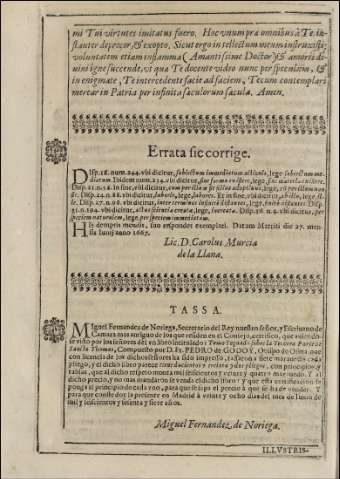 mi Tui virtutes imitatus fuero. Hoc vnum præ omnibus à Te in-
stanter deprecor, & exopto. Sicut ergo intellectum meum instruxisti;
voluntatem etiam inflamma (Amantissime Doctor) & amoris di-
uini igne succende, vt qua Te docente video nunc per speculum, &
in enigmate, Te intercedente facie ad faciem, Tecum contemplari
merear in Patria per infinita sæculorum sæcula. Amen.
Errata sic corrige.
Disp. 18. num. 244. vbi dicitur, subiectum immediatum actionis, lege subiectum me-
diatum. Ibidem num. 254. vbi dicitur, lege,
Disp. 21. n. 18. in fine, vbi dicitur, lege,
Disp. 24. n. 88. vbi dicitur, labore, lege, labore. Et in fine, vbi dicitur, lege,
Disp. 27. n. 98. vbi dicitur, lege, Disp.
31. n. 194. vbi dicitur, lege, increata. Disp. 36. n. 4. vbi dicitur, per
speciem naturalem, lege, per speciem
His demptis mendis, suo respondet exemplari. Datum Matriti die 27. men-
sis Iunij anno 1667.
Lic. D. Carolus Murcia
de la Llana.
TASSA.
Miguel Fernandez de Noriega, Secretario del Rey nuestro señor, y Escriuano de
Camara mas antiguo de los que residen en el Consejo, certifico, que auiendo-
se visto por los señores dèl vn libro intitulado: Tomo segundo sobre la Tercera Parte de
Santo Thomas, Compuesto por D. Fr. PEDRO DE GODOY, Obispo de Osma, que
con licencia de los dichos señores ha sido impresso, tassaron a siete marauedis cada
pliego, y el dicho libro parece tener y pliegos, con principios, y
tablas, que al dicho respeto monta mil seiscientos y y quatro marauedis. Y al
dicho precio, y no mas mandaron se venda el dicho libro: y que esta certificacion se
ponga al principio de cada vno, para que se sepa el precio a que se ha de vender. Y
para que conste doy la presente en Madrid à veinte y ocho dias del mes de Iunio de
mil y seiscientos y sesenta y siete años.
Miguel Fernandez de Noriega.
ILLVSTRIS-